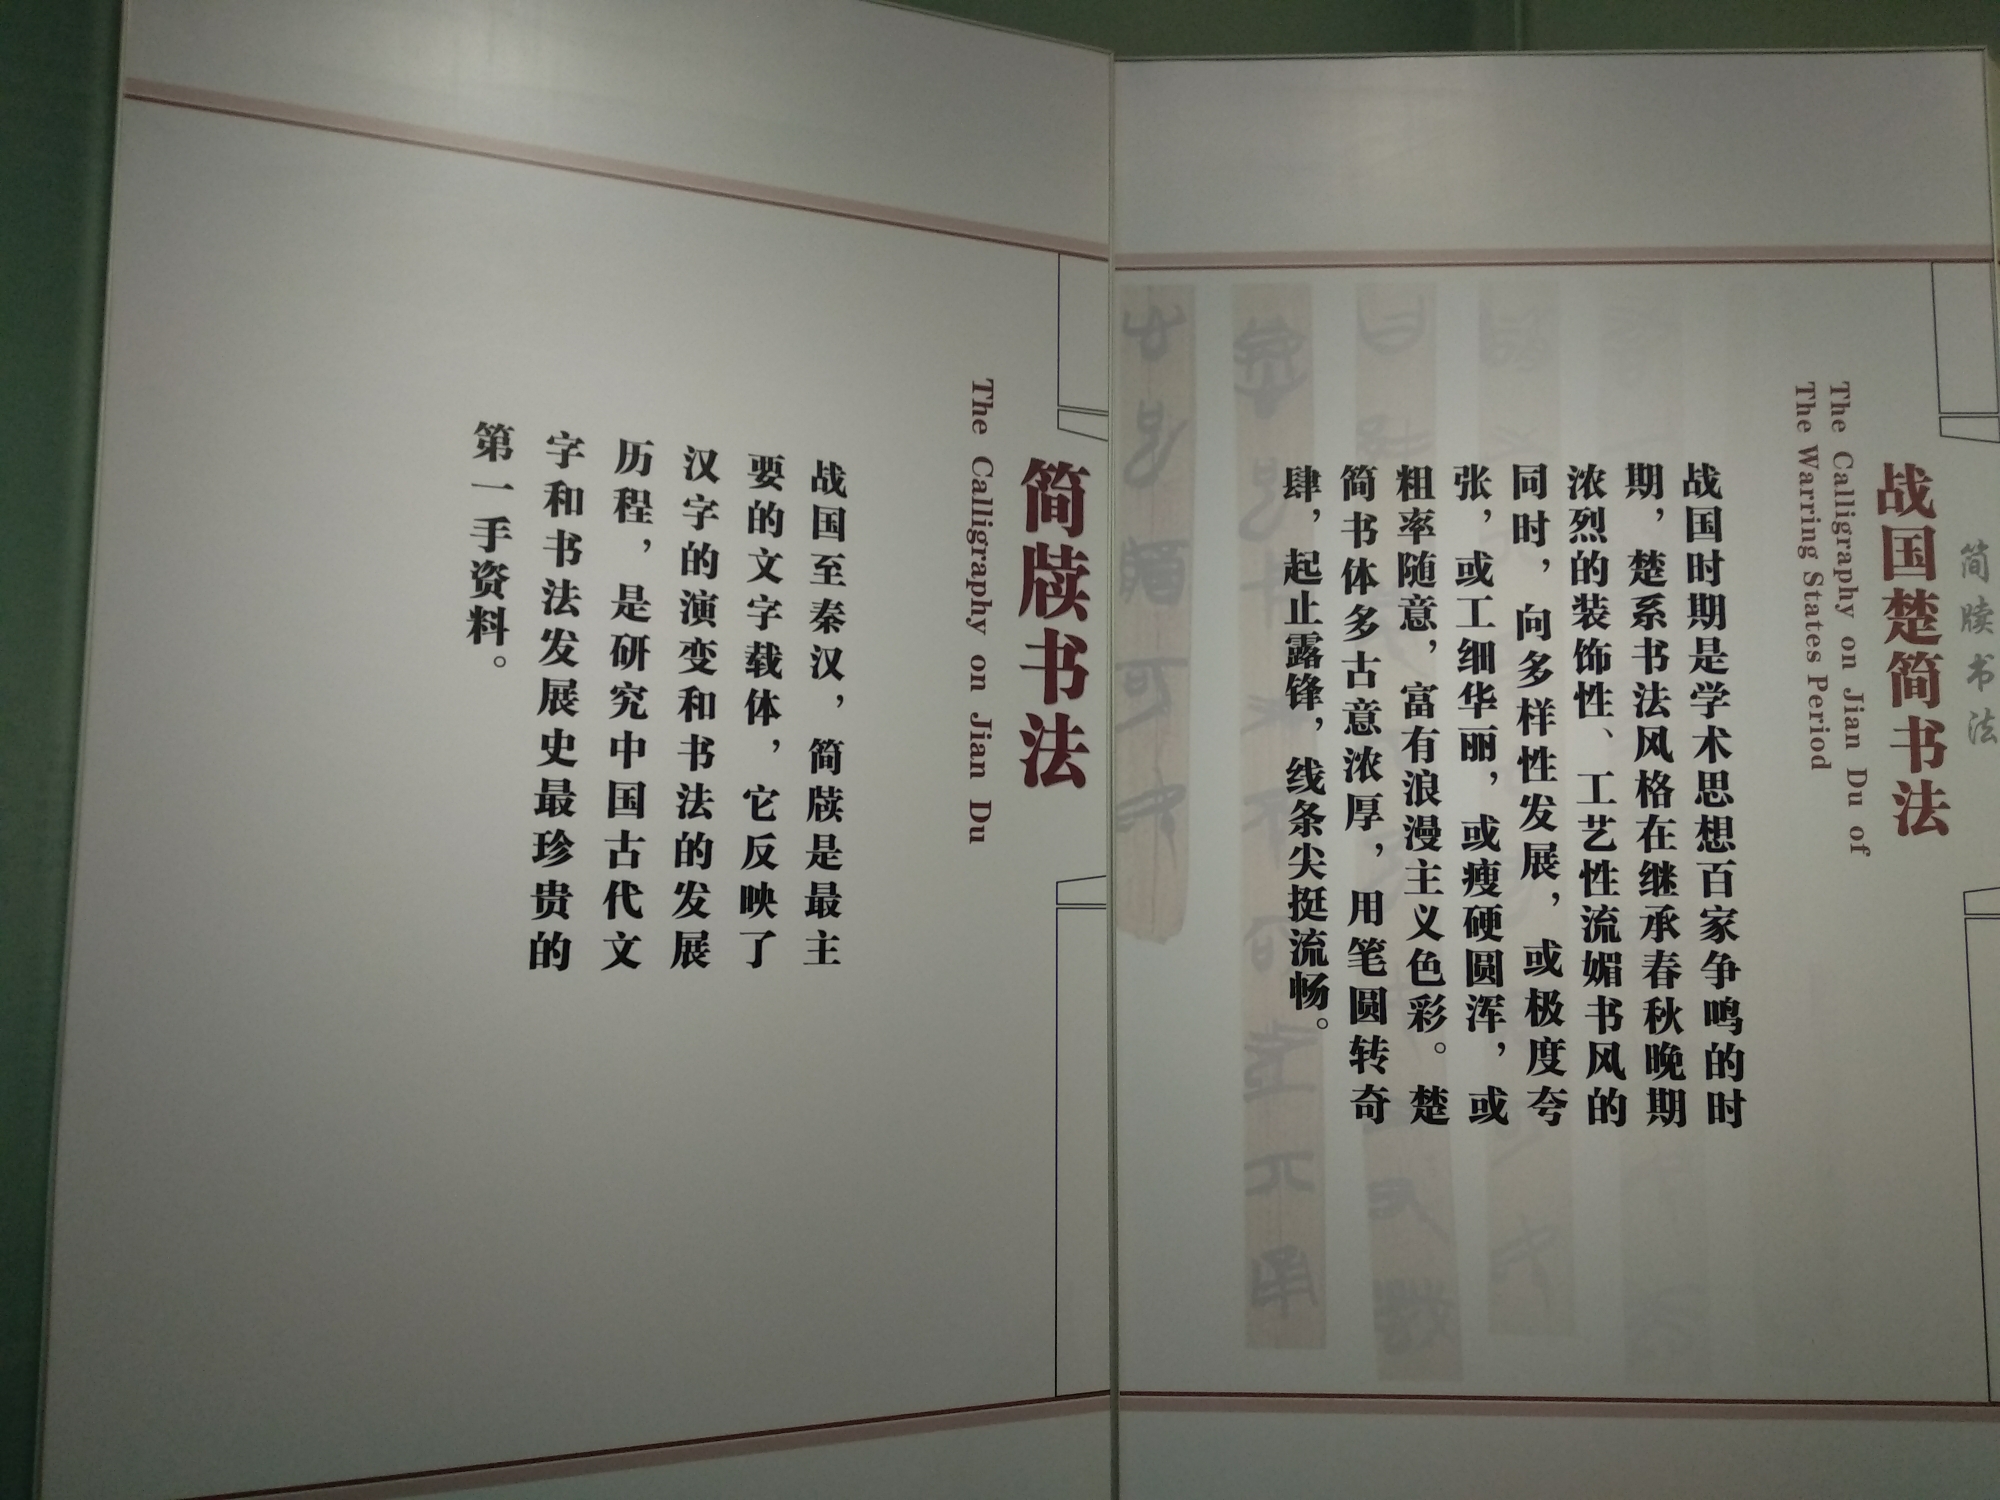 简牍书法
战国楚简书法
The Calligraphy on Jian Du of
The Warring States Period
战国时期是学术思想百家争鸣的时
期，楚系书法风格在继承春秋晚期
浓烈的装饰性、工艺性流媚书风的
同时，向多样性发展，或极度夸
张，或工细华丽，或瘦硬圆浑，或
粗率随意，富有浪漫主义色彩。楚
简书体多古意浓厚，用笔圆转奇
肆，起止露锋，线条尖挺流畅。
简牍书法
The Calligraphy on Jian Du
战国至秦汉，简牍是最主
要的文字载体，它反映了
汉字的演变和书法的发展
历程，是研究中国古代文
字和书法发展史最珍贵的
第一手资料。